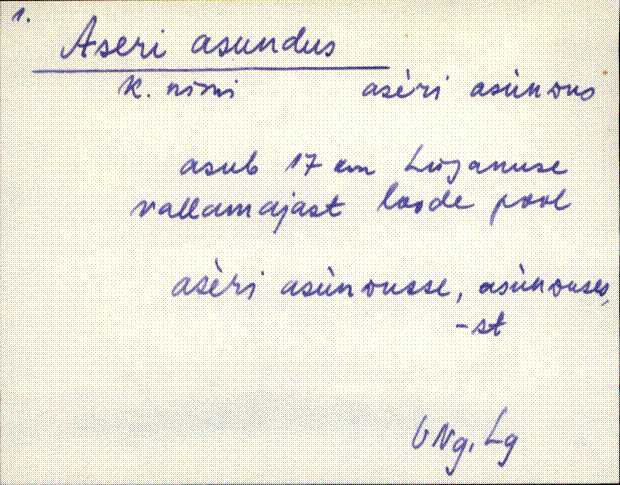 1.
Aseri asundus
k. nimi asèri asùnous
asub 17 km Lüganuse
vallamajast loode pool
asèri asùnousse, asùnouses,
-st
VNg, Lg